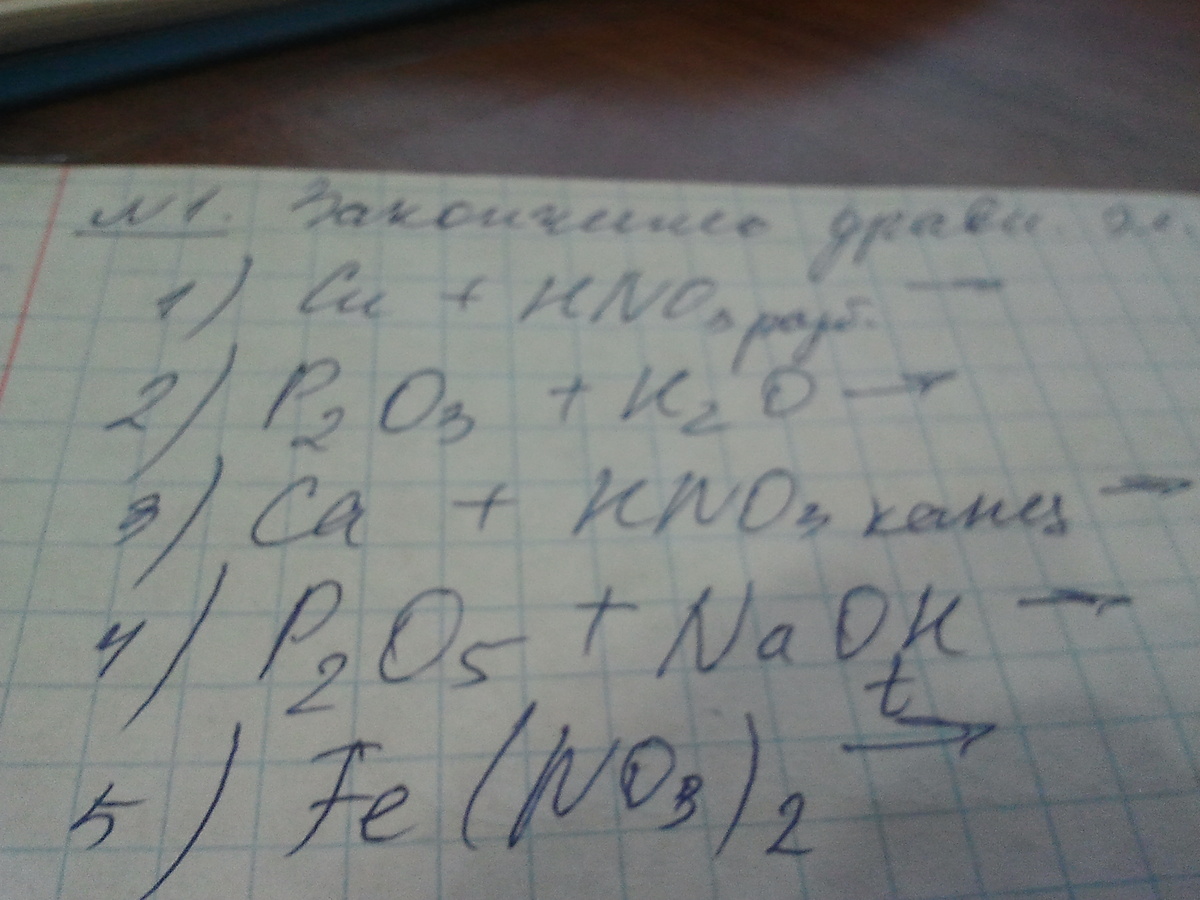 №1. Закончить уравн. эл.
1) Cu + HNO3 разб. —
2) P2O3 + H2O →
3) Ca + HNO3 конц →
4) P2O5 + NaOH →
5) Fe(NO3)2 t→